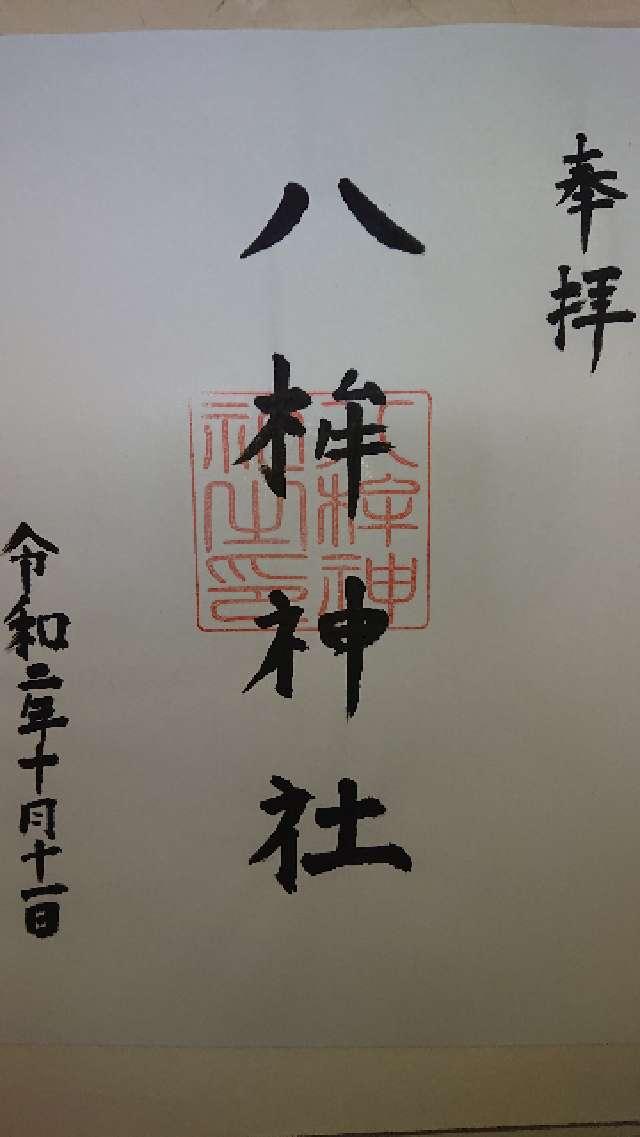 奉拝
八桙神社
八桙神社之印
令和二年十月十一日